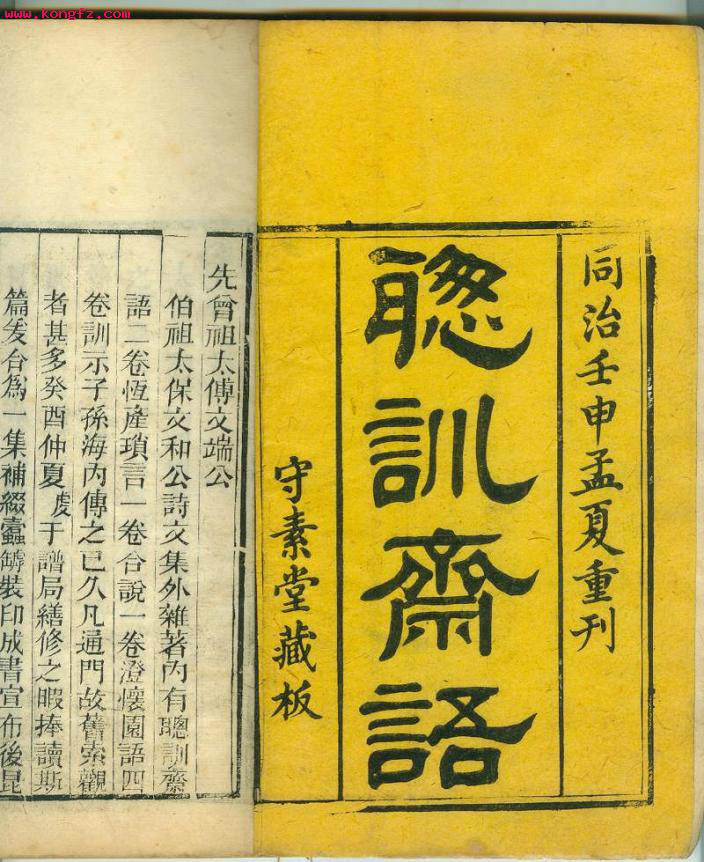 www.kongfz.com
同治壬申孟夏重刊
聰訓齋語
守素堂藏板
先曾祖太傅文端公
伯祖太保文和公詩文集外雜著內有聰訓齋
語二卷恆產瑣言一卷合說一卷澄懷園語四
卷訓示子孫海內傳之已久凡通門故舊索觀
者甚多癸酉仲夏虔于譜局繕修之暇捧讀斯
篇爰合為一集補綴蠹罅裝印成書宣布後昆